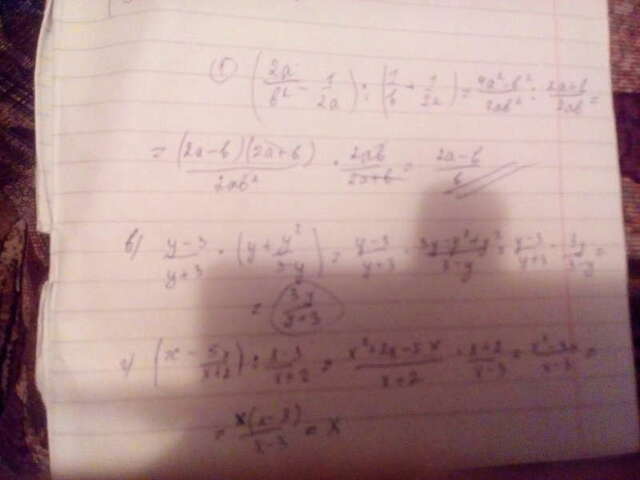 б) (2a/b² - 1/2a) : (1/b + 1/2a) = 4a²-b²/2ab² : 2a+b/2ab =
= (2a-b)(2a+b)/2ab² · 2ab/2a+b = 2a-b/b
в) y-3/y+3 · (y + y²/3-y) = y-3/y+3 · 3y-y²+y²/3-y = y-3/y+3 · 3y/3-y =
= 3y/y+3
г) (x - 5x/x+2) : x-3/x+2 = x²+2x-5x/x+2 · x+2/x-3 = x²-3x/x-3 =
= x(x-3)/x-3 = x